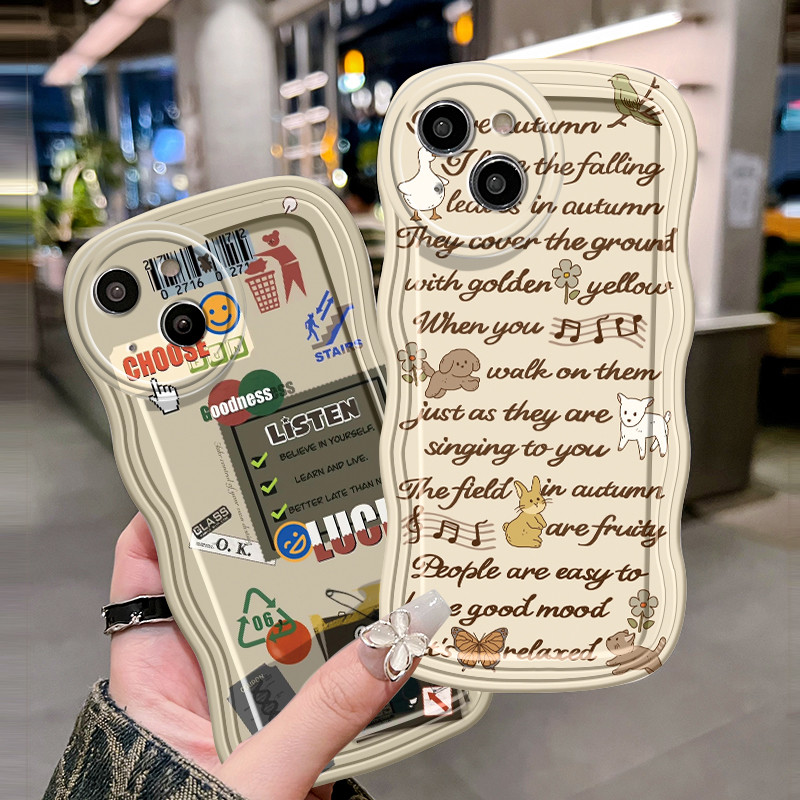 autumn
the falling
in autumn
They cover the ground
with golden yellow
When you
walk on them
just as they are
singing to you
The field in autumn
are fruity
People are easy to
good mood
relaxed
2 7 2 7 2
0 2716 0 27
CHOOSE
STAIRS
Goodness
LiSTEN
BELIEVE IN YOURSELF.
LEARN AND LIVE.
BETTER LATE THAN
LUC
GLASS
O. K.
06